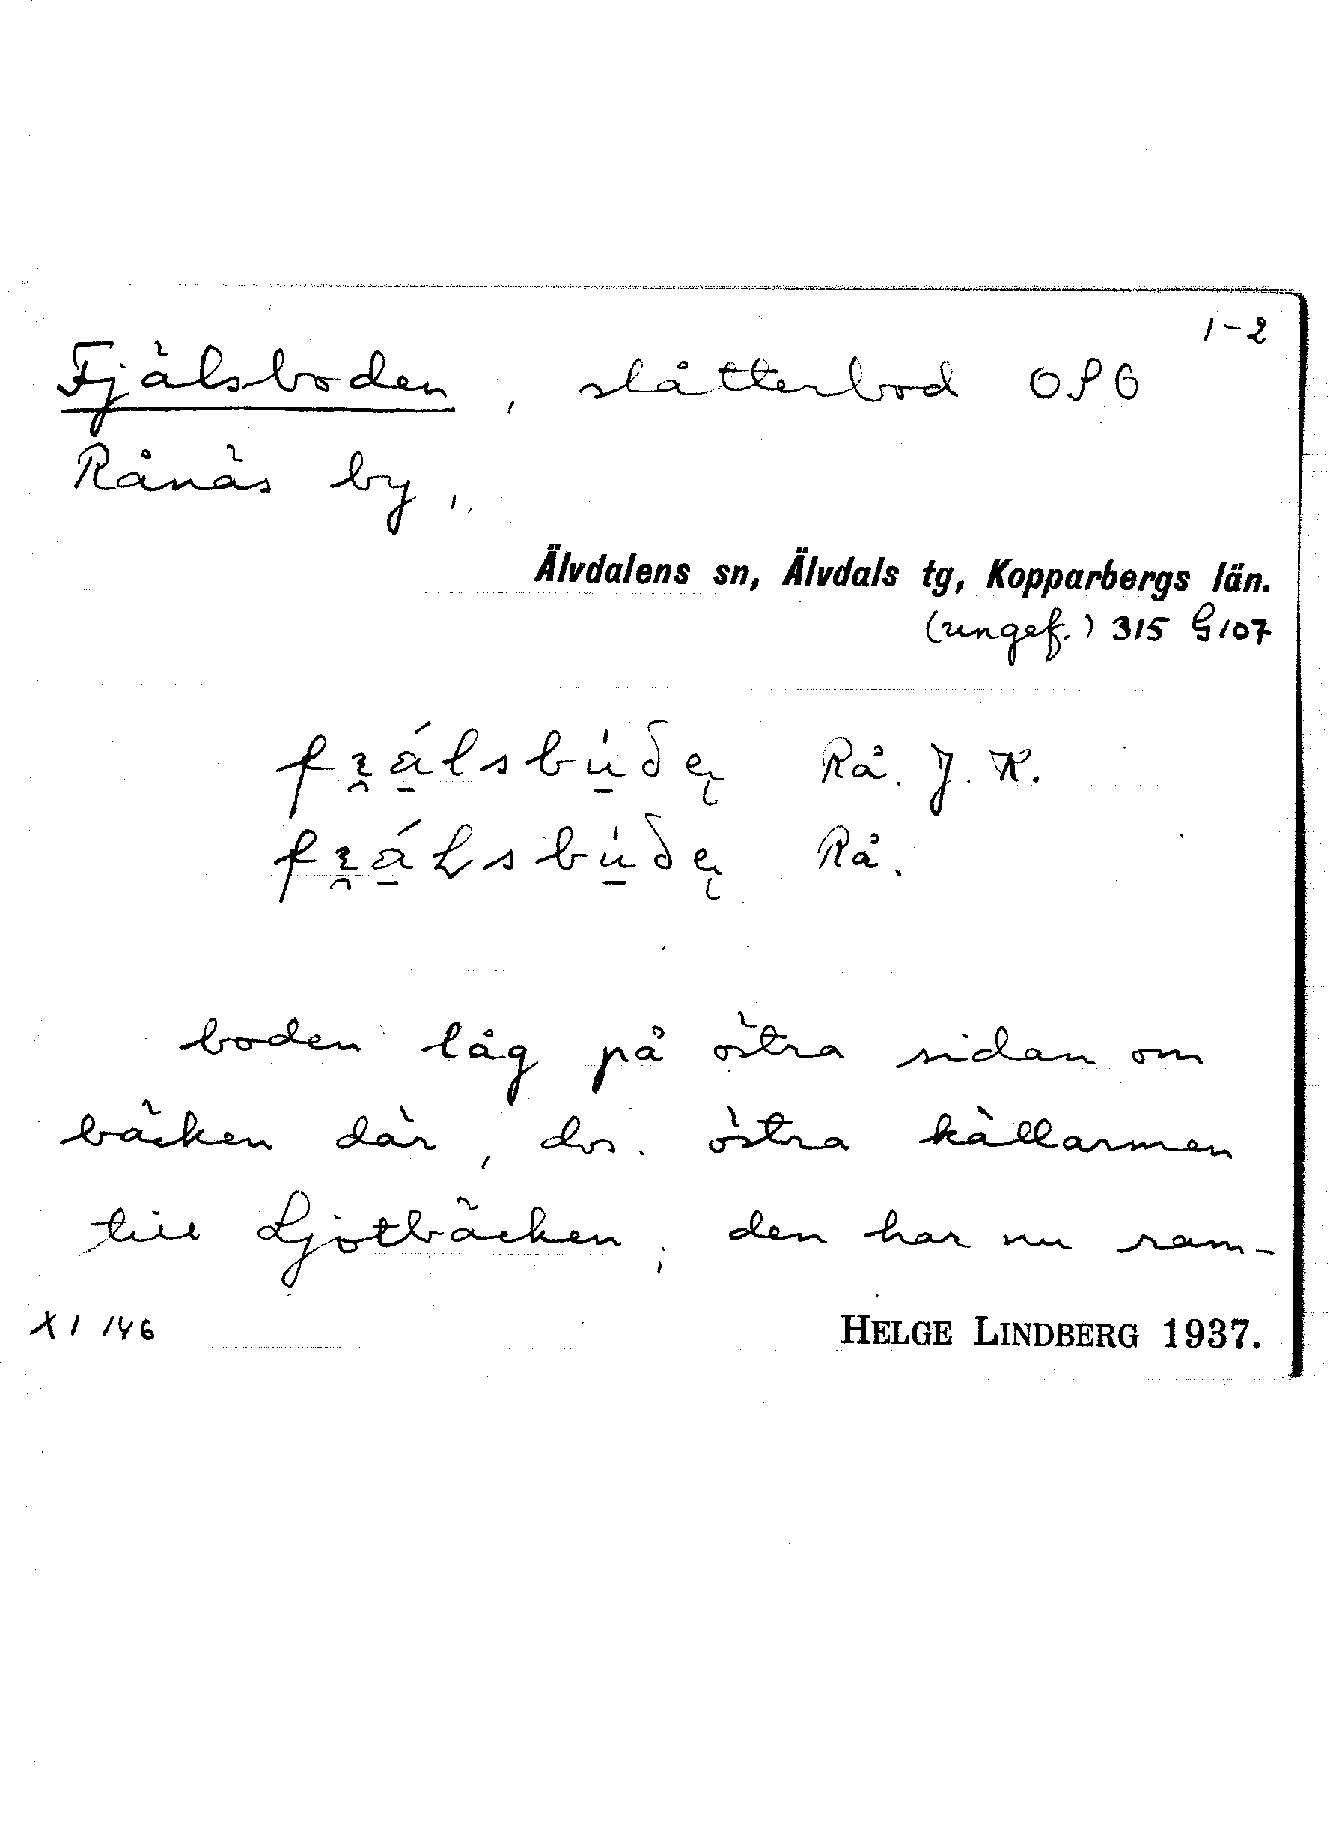 1-2
Fjälsboden, slåtterbod OPO
Rånäs by,
Älvdalens sn, Älvdals tg, Kopparbergs län.
(ungef.) 315 G107
Rå. J. K.
Rå.
boden låg på östra sidan om
bäcken där, dvs. östra källarmen
till Ljotbäcken; den har nu ram-
XI 146
HELGE LINDBERG 1937.